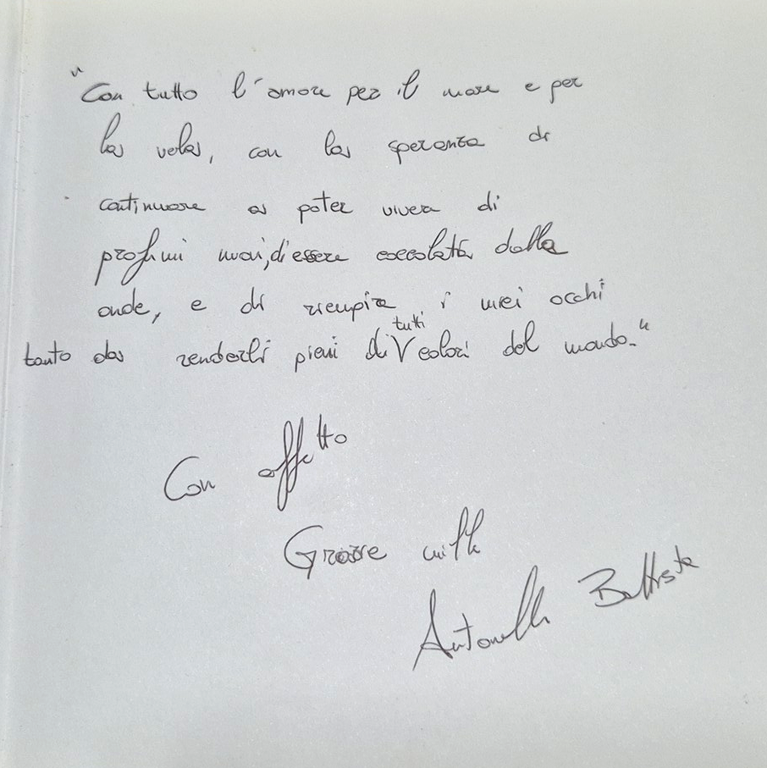 "Con tutto l'amore per il mare e per
la vela, con la speranza di
continuare a poter vivere di
profumi nuovi, d'essere coccolata dalle
onde, e di riempire i miei occhi
tanto da renderli pieni di tutti colori del mondo."
Con affetto
Grazie mille
Antonella Battista